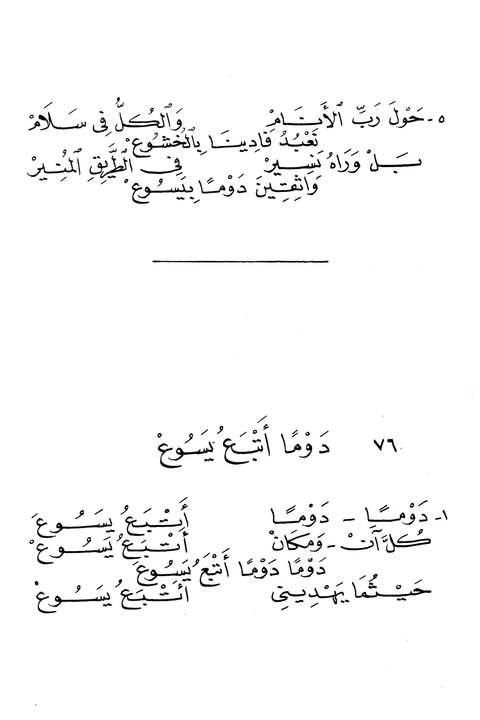 ٥- حَوْلَ رَبِّ ٱلْأَنَامْ وَٱلْكُلُّ فِي سَلَامْ
نَعْبُدُ فَادِينَا بِٱلْخُشُوعْ
بَلْ وَرَاهُ نَسِيرْ فِي ٱلطَّرِيقِ ٱلْمُنِيرْ
وَاثِقِينَ دَوْمًا بِيَسُوعْ
٧٦ دَوْمًا أَتْبَعُ يَسُوعْ
١- دَوْمًا - دَوْمًا أَتْبَعُ يَسُوعَ
كُلَّ آنْ - وَمَكَانْ أَتْبَعُ يَسُوعْ
دَوْمًا دَوْمًا أَتْبَعُ يَسُوعِ
حَيْثُمَا يَهْدِينِي أَتْبَعُ يَسُوعْ